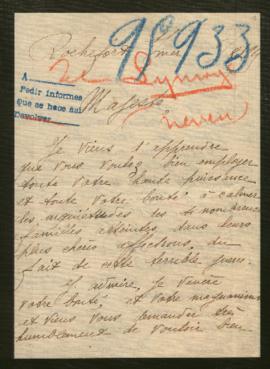 98933
Rochefort mer
A
Pedir informes
que se hace aquí
Devolver
Majesté
Je viens d'apprendre
que vous voulez bien employer
toute votre haute puissance
et toute votre bonté à calmer
les inquiétudes de si nombreuses
familles atteintes dans leurs
plus chères affections du
fait de cette terrible guerre.
J'admire, je vénère
votre bonté, et votre magnanimité
et viens vous demander très
humblement de vouloir bien